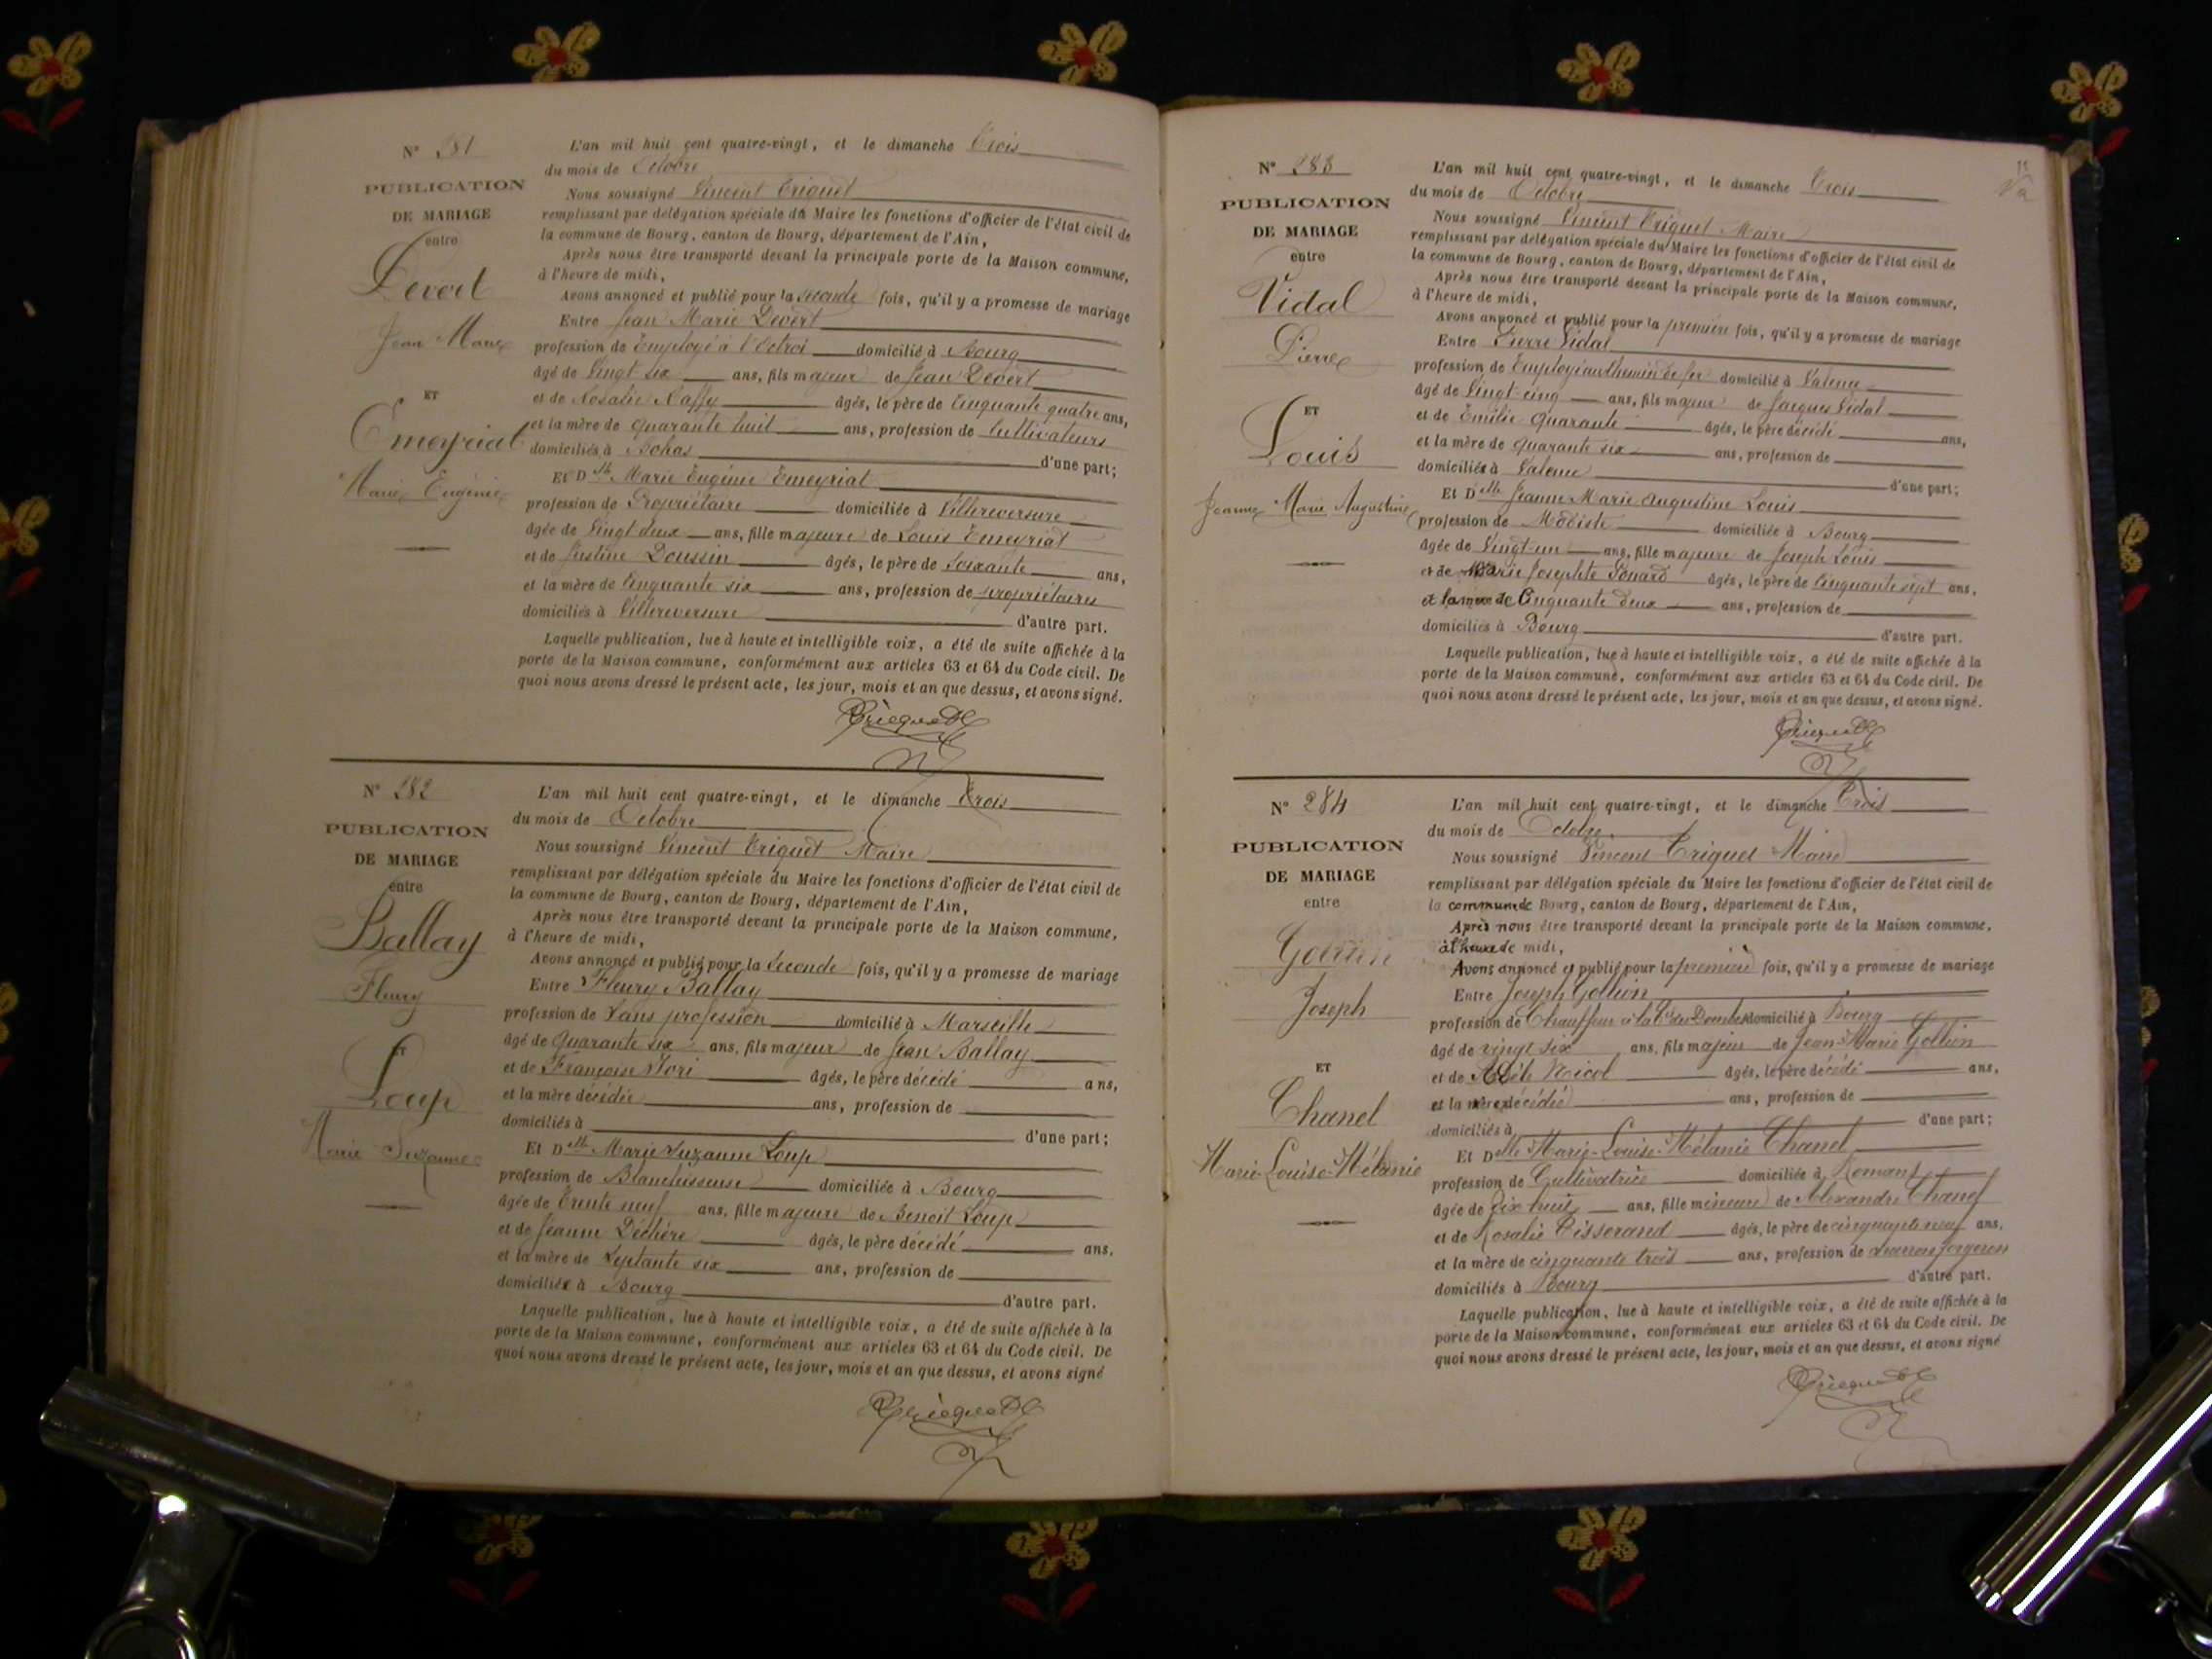 N° 281
PUBLICATION
DE MARIAGE
entre
Devert
Jean Marie
ET
Emeyriat
Marie Eugénie
L'an mil huit cent quatre-vingt, et le dimanche Trois
du mois de Octobre
Nous soussigné Vincent Triquet
remplissant par délégation spéciale du Maire les fonctions d'officier de l'état civil de
la commune de Bourg, canton de Bourg, département de l'Ain,
Après nous être transporté devant la principale porte de la Maison commune,
à l'heure de midi,
Avons annoncé et publié pour la seconde fois, qu'il y a promesse de mariage
Entre Jean Marie Devert
profession de Employé à l'Octroi domicilié à Bourg
âgé de Vingt six ans, fils majeur de Jean Devert
et de Rosalie Raffy âgés, le père de Cinquante quatre ans,
et la mère de quarante huit ans, profession de Cultivateurs
domiciliés à Bohas d'une part;
Et Dlle Marie Eugénie Emeyriat
profession de Propriétaire domiciliée à Villereversure
âgée de Vingt deux ans, fille majeure de Louis Emeyriat
et de Justine Doussin âgés, le père de Soixante ans,
et la mère de Cinquante six ans, profession de propriétaires
domiciliés à Villereversure d'autre part.
Laquelle publication, lue à haute et intelligible voix, a été de suite affichée à la
porte de la Maison commune, conformément aux articles 63 et 64 du Code civil. De
quoi nous avons dressé le présent acte, les jour, mois et an que dessus, et avons signé.
Triquet
N° 282
PUBLICATION
DE MARIAGE
entre
Ballay
Fleury
ET
Loup
Marie Suzanne
L'an mil huit cent quatre-vingt, et le dimanche Trois
du mois de Octobre
Nous soussigné Vincent Triquet Maire
remplissant par délégation spéciale du Maire les fonctions d'officier de l'état civil de
la commune de Bourg, canton de Bourg, département de l'Ain,
Après nous être transporté devant la principale porte de la Maison commune,
à l'heure de midi,
Avons annoncé et publié pour la Seconde fois, qu'il y a promesse de mariage
Entre Fleury Ballay
profession de Sans profession domicilié à Marseille
âgé de Quarante six ans, fils majeur de Jean Ballay
et de Françoise Jori âgés, le père décédé ans,
et la mère décédée ans, profession de
domiciliés à d'une part;
Et Dlle Marie Suzanne Loup
profession de Blanchisseuse domiciliée à Bourg
âgée de Trente neuf ans, fille majeure de Benoit Loup
et de Jeanne Déchère âgés, le père décédé ans,
et la mère de Septante six ans, profession de
domiciliés à Bourg d'autre part.
Laquelle publication, lue à haute et intelligible voix, a été de suite affichée à la
porte de la Maison commune, conformément aux articles 63 et 64 du Code civil. De
quoi nous avons dressé le présent acte, les jour, mois et an que dessus, et avons signé
Triquet
N° 283
PUBLICATION
DE MARIAGE
entre
Vidal
Pierre
ET
Louis
Jeanne Marie Augustine
L'an mil huit cent quatre-vingt, et le dimanche Trois
du mois de Octobre
Nous soussigné Vincent Triquet Maire
remplissant par délégation spéciale du Maire les fonctions d'officier de l'état civil de
la commune de Bourg, canton de Bourg, département de l'Ain,
Après nous être transporté devant la principale porte de la Maison commune,
à l'heure de midi,
Avons annoncé et publié pour la première fois, qu'il y a promesse de mariage
Entre Pierre Vidal
profession de Employé au Chemin de fer domicilié à Valence
âgé de Vingt-cinq ans, fils majeur de Jacques Vidal
et de Emilie Quarante âgés, le père décédé ans,
et la mère de quarante six ans, profession de
domiciliés à Valence d'une part;
Et Dlle Jeanne Marie Augustine Louis
profession de Modiste domiciliée à Bourg
âgée de Vingt-un ans, fille majeure de Joseph Louis
et de Marie Josephte Gouard âgés, le père de Cinquante sept ans,
et la mère de Cinquante deux ans, profession de
domiciliés à Bourg d'autre part.
Laquelle publication, lue à haute et intelligible voix, a été de suite affichée à la
porte de la Maison commune, conformément aux articles 63 et 64 du Code civil. De
quoi nous avons dressé le présent acte, les jour, mois et an que dessus, et avons signé.
Triquet
N° 284
PUBLICATION
DE MARIAGE
entre
Gollion
Joseph
ET
Chanel
Marie-Louise-Mélanie
L'an mil huit cent quatre-vingt, et le dimanche Trois
du mois de Octobre
Nous soussigné Vincent Triquet Maire
remplissant par délégation spéciale du Maire les fonctions d'officier de l'état civil de
la commune de Bourg, canton de Bourg, département de l'Ain,
Après nous être transporté devant la principale porte de la Maison commune,
à l'heure de midi,
Avons annoncé et publié pour la première fois, qu'il y a promesse de mariage
Entre Joseph Gollion
profession de Chauffeur à la Cie des Dombes domicilié à Bourg
âgé de vingt six ans, fils majeur de Jean-Marie Gollion
et de Adèle Nicol âgés, le père décédé ans,
et la mère décédée ans, profession de
domiciliés à d'une part;
Et Dlle Marie-Louise-Mélanie Chanel
profession de Cultivatrice domiciliée à Romans
âgée de Dix huit ans, fille mineure de Alexandre Chanel
et de Rosalie Tisserand âgés, le père de cinquante neuf ans,
et la mère de cinquante trois ans, profession de forgeron
domiciliés à Bourg d'autre part.
Laquelle publication, lue à haute et intelligible voix, a été de suite affichée à la
porte de la Maison commune, conformément aux articles 63 et 64 du Code civil. De
quoi nous avons dressé le présent acte, les jour, mois et an que dessus, et avons signé
Triquet